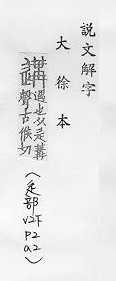 說文解字
大徐本
遘 遇也从辵冓
聲古候切
（辵部
V2下
P2
a2）